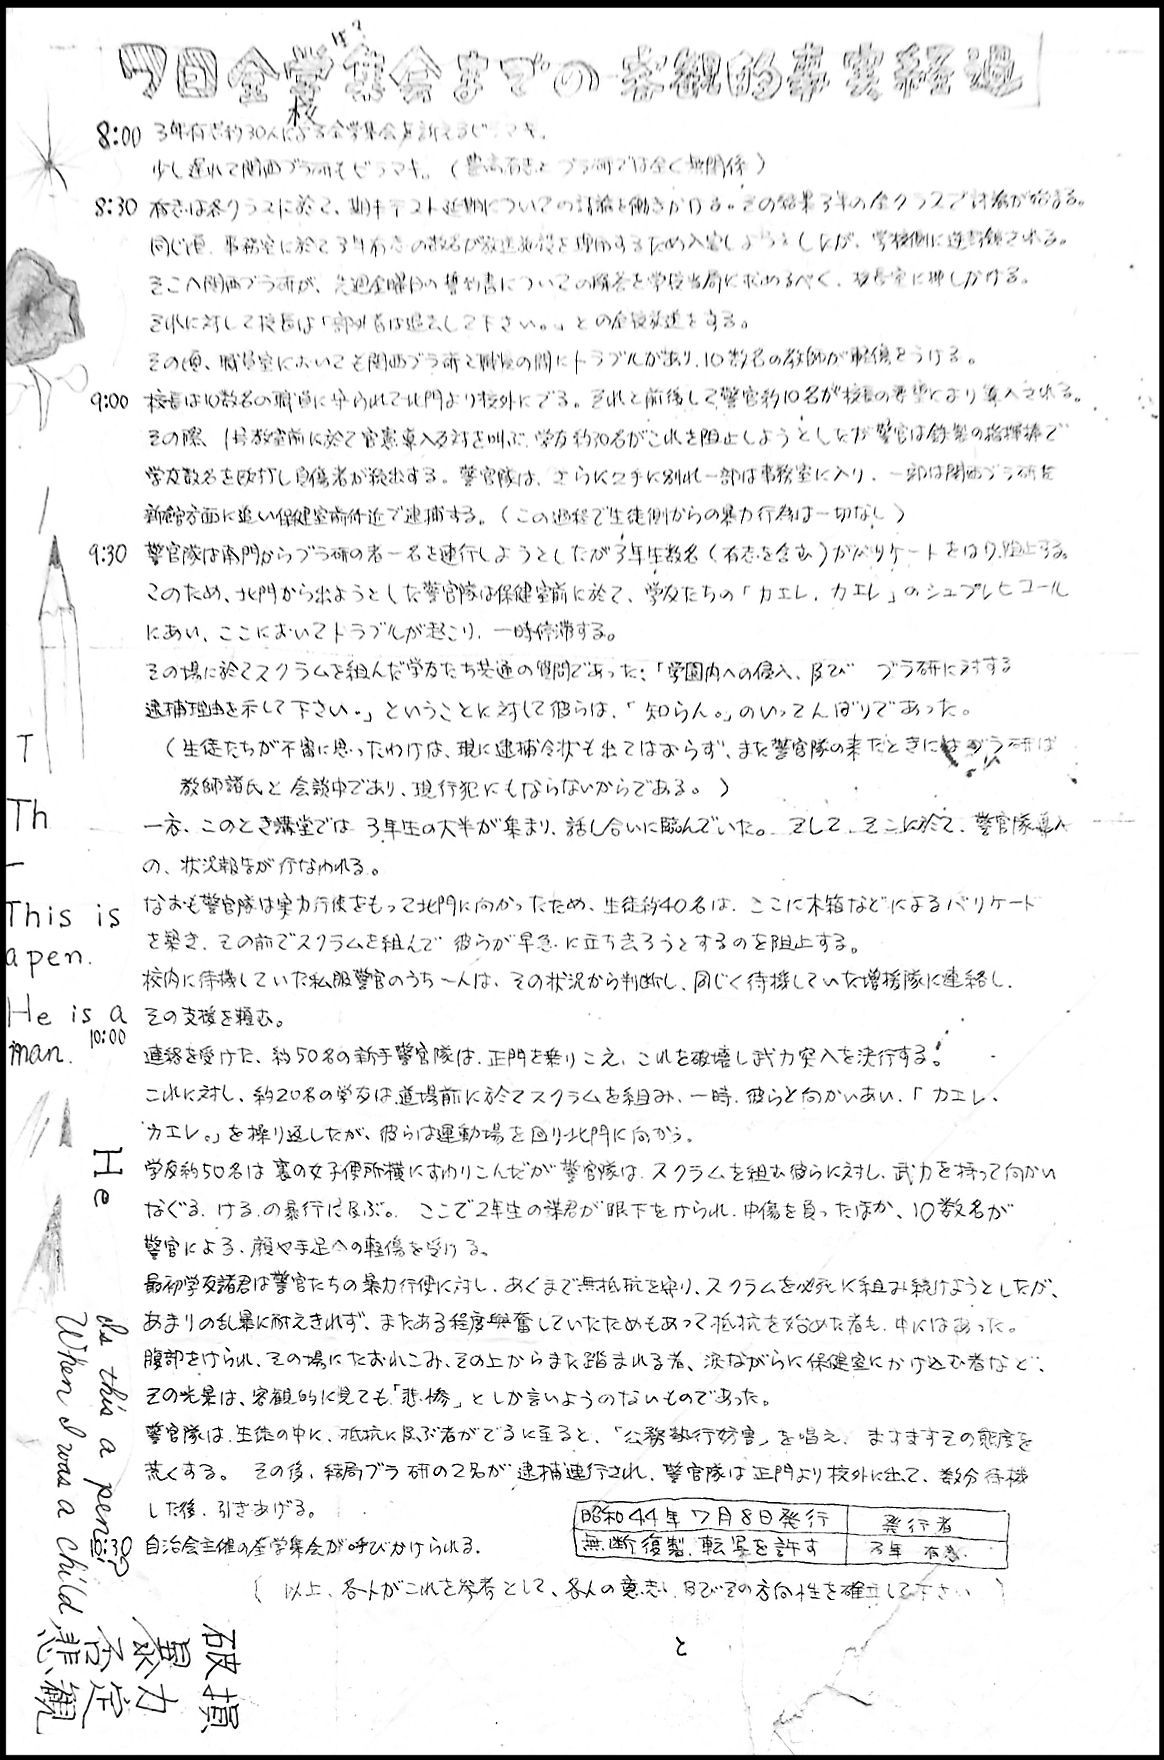 7回全学集会までの客観的事実経過
校
8:00 3年有志約30人による全学集会を訴えるビラマキ。
少し遅れて関西ブラ研もビラマキ。(豊高有志とブラ研では全く無関係)
8:30 有志は各クラスに於て、期末テスト延期についての討論を働きかける。その結果3年の全クラスで討論が始まる。
同じ頃、事務室に於て3年有志の数名が放送施設を使用するため入室しようとしたが、学校側に
そこへ関西ブラ研が、先週金曜日の誓約書についての解答を学校当局に求めるべく、校長室に押しかける。
それに対して校長は「部外者は退去して下さい。」との全校放送をする。
その頃、職員室においても関西ブラ研と職員の間にトラブルがあり、10数名の教師が軽傷をうける。
9:00 校長は10数名の職員に守られて北門より校外にでる。それと前後して警官約10名が校長の要望により導入される。
その際、1号教室前に於て官憲導入反対を叫ぶ学友約70名がこれを阻止しようとしたが警官は鉄製の指揮棒で
学友数名を殴打し負傷者が続出する。警官隊は、さらに2手に別れ一部は事務室に入り、一部は関西ブラ研を
新館方面に追い保健室前付近で逮捕する。(この過程で生徒側からの暴力行為は一切なし)
9:30 警官隊は南門からブラ研の者一名を連行しようとしたが3年生数名(有志を含む)がバリケートをはり、阻止する。
このため、北門から出ようとした警官隊は保健室前に於て、学友たちの「カエレ、カエレ」のシュプレヒコール
にあい、ここにおいてトラブルが起こり、一時停滞する。
その場に於てスクラムを組んだ学友たち共通の質問であった、「学園内への侵入、及び ブラ研に対する
逮捕理由を示して下さい。」ということに対して彼らは、「知らん。」のいってんばりであった。
(生徒たちが不審に思ったわけは、現に逮捕令状も出てはおらず、また警官隊の来たときにはブラ研は
教師諸氏と会談中であり、現行犯にもならないからである。)
一方、このとき講堂では3年生の大半が集まり、話し合いに臨んでいた。そして、そこに於て、警官隊導入
の、状況報告が行なわれる。
なおも警官隊は実力行使をもって北門に向かったため、生徒約40名は、ここに木箱などによるバリケード
を築き、その前でスクラムを組んで彼らが早急に立ち去ろうとするのを阻止する。
校内に待機していた私服警官のうち一人は、その状況から判断し、同じく待機していた増援隊に連絡し、
その支援を頼む。
10:00 連絡を受けた、約50名の新手警官隊は、正門を乗りこえ、これを破壊し武力突入を決行する。
これに対し、約20名の学友は道場前に於てスクラムを組み、一時、彼らと向かいあい、「カエレ、
カエレ。」を繰り返したが、彼らは運動場を回り北門に向かう。
学友約50名は裏の女子便所横にすわりこんだが警官隊は、スクラムを組む彼らに対し、武力を持って向かい
なぐる、けるの暴行に及ぶ。ここで2年生の某君が眼下をけられ、中傷を負ったほか、10数名が
警官による、顔や手足への軽傷を受ける。
最初学友諸君は警官たちの暴力行使に対し、あくまで無抵抗を守り、スクラムを必死に組み続けようとしたが、
あまりの乱暴に耐えきれず、またある程度興奮していたためもあって抵抗を始めた者も、中にはあった。
腹部をけられ、その場にたおれこみ、その上からまた踏まれる者、涙ながらに保健室にかけ込む者など、
その光景は、客観的に見ても「悲惨」としか言いようのないものであった。
警官隊は、生徒の中に、抵抗に及ぶ者がでるに至ると、「公務執行妨害」を唱え、ますますその態度を
荒くする。その後、結局ブラ研の2名が逮捕連行され、警官隊は正門より校外に出て、数分待機
した後、引きあげる。
:30 自治会主催の全学集会が呼びかけられる。
昭和44年7月8日発行 発行者
無断復製、転写を許す 3年 有志
(以上、各人がこれを参考として、各人の意志、及びその方向性を確立して下さい)
と
T
Th
This is
a pen.
He is a
man.
He
Is this a pen?
When I was a child
破損
暴力
否定
悲観